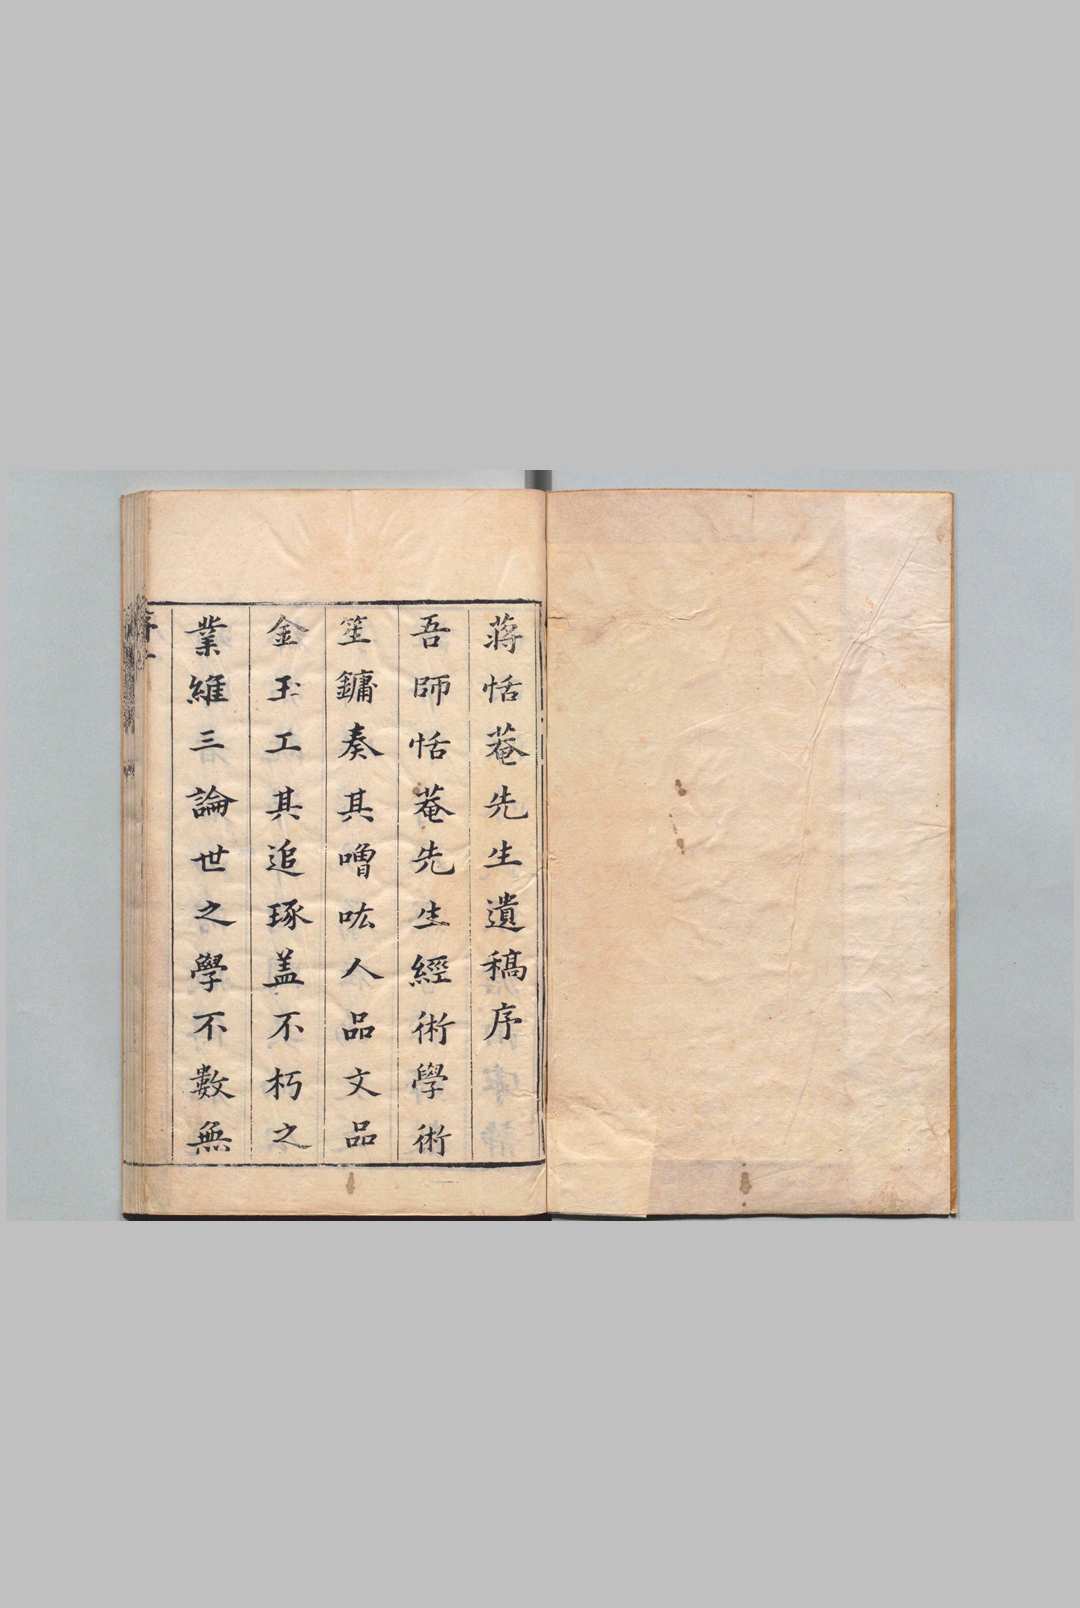 蔣恬菴先生遺稿序
吾師恬菴先生經術學術
笙鏞奏其噌吰人品文品
金玉工其追琢盖不朽之
業維三論世之學不數無
序一